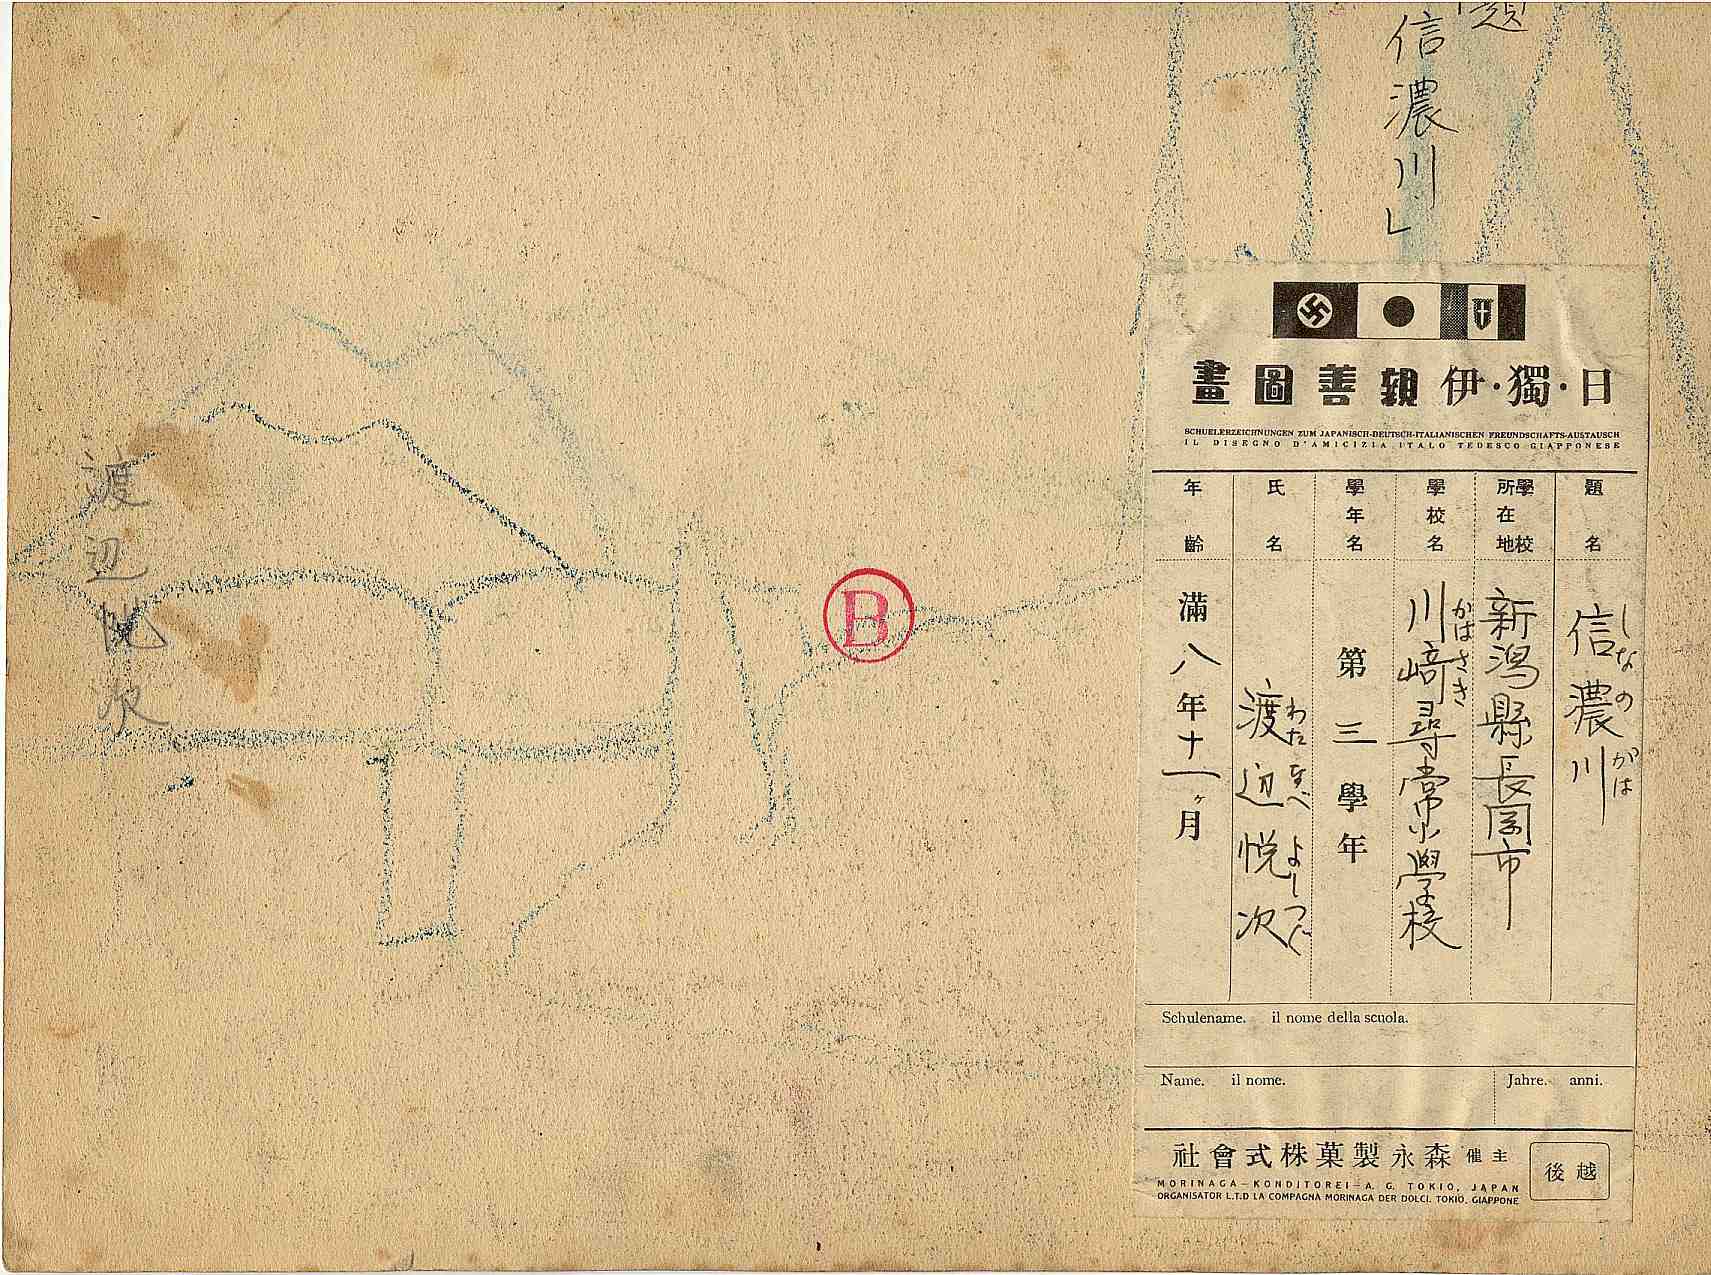 題
信濃川」
渡辺悦次
B
日・獨・伊親善圖畫
SCHUELERZEICHNUNGEN ZUM JAPANISCH-DEUTSCH-ITALIANISCHEN FREUNDSCHAFTS-AUSTAUSCH
IL DISEGNO D'AMICIZIA ITALO TEDESCO GIAPPONESE
題名
信濃川
しなのがは
學校所在地
新潟縣長岡市
學校名
川崎尋常小學校
かはさき
學年名
第三學年
氏名
渡辺悦次
わたなべよしつぐ
年齡
滿八年十一ヶ月
Schulename. il nome della scuola.
Name. il nome.
Jahre. anni.
主催 森永製菓株式會社
MORINAGA-KONDITOREI-A. G. TOKIO, JAPAN
ORGANISATOR L.T.D LA COMPAGNA MORINAGA DER DOLCI. TOKIO. GIAPPONE
越後